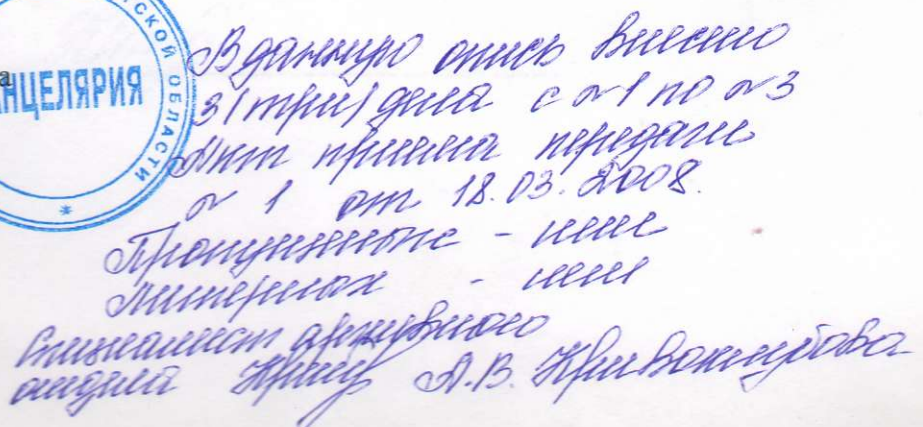 СКОЙ ОБЛАСТИ
а
НЦЕЛЯРИЯ
В данную опись внесено
3/три/ дела с № 1 по № 3
Акт приема передачи
№ 1 от 18.03.2008.
Пропущенные - нет
Литерных - нет
Специалист архивного
отдела А.В. Кривокиубова